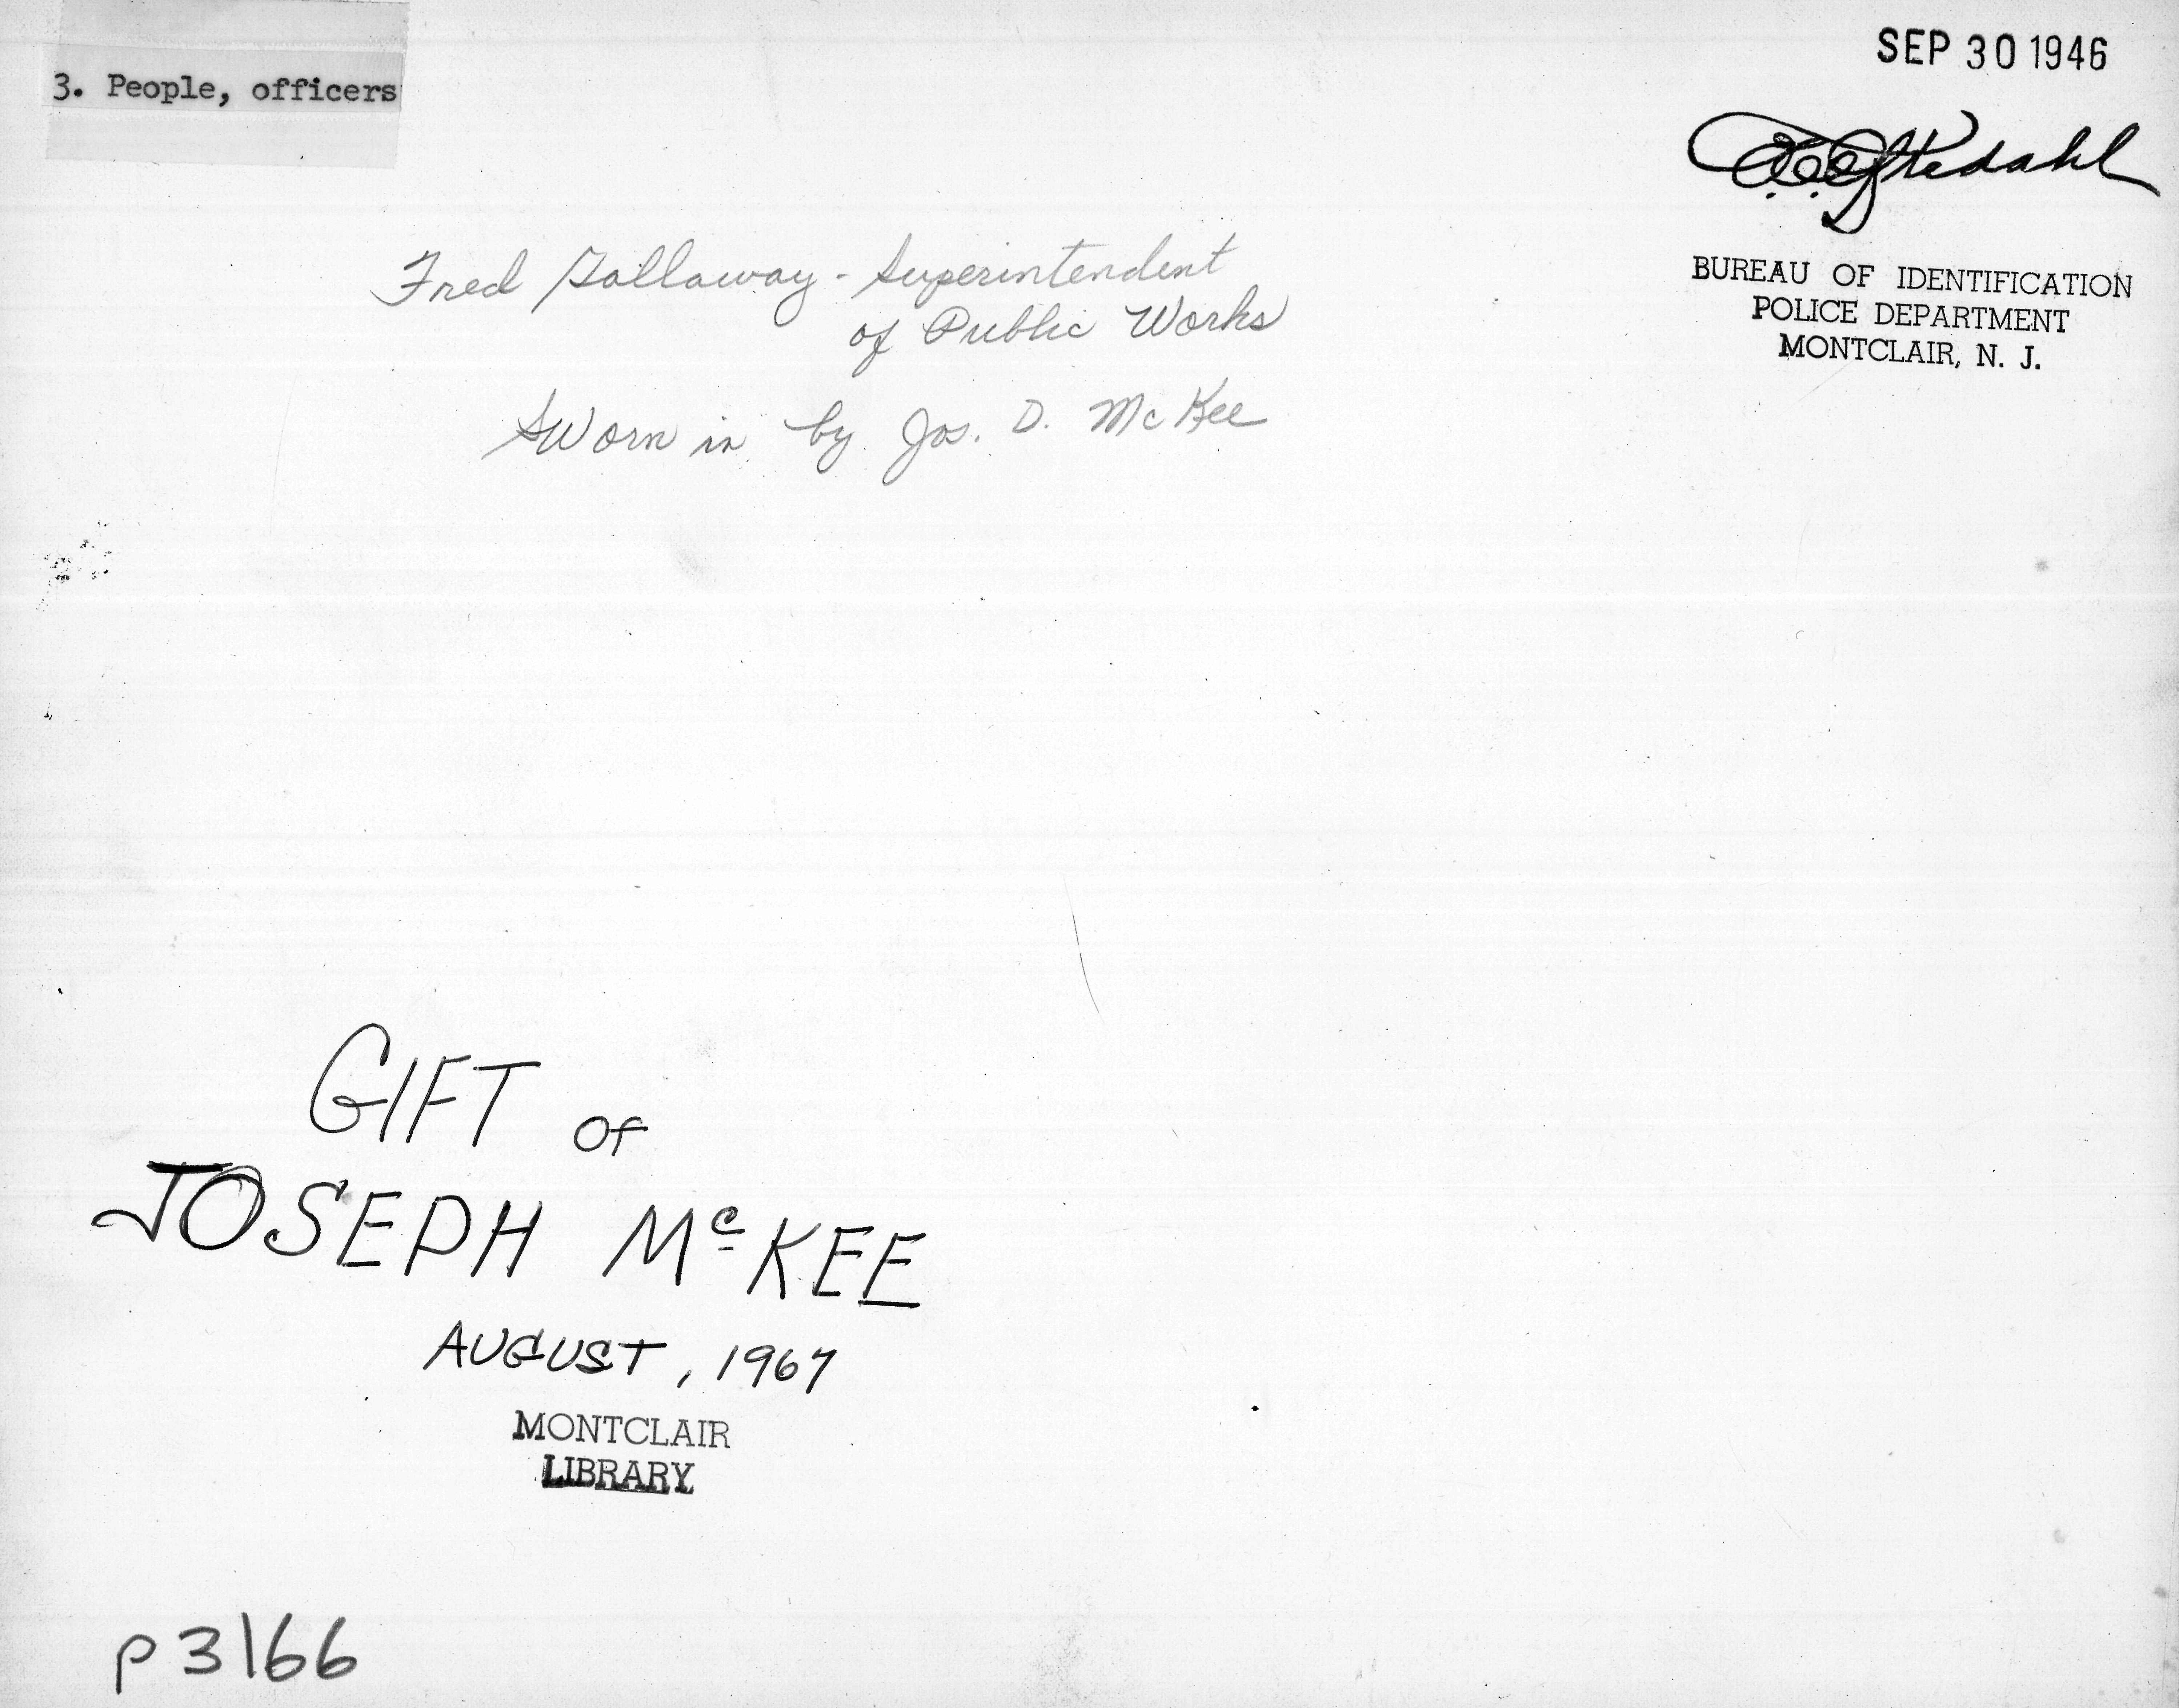 3. People, officers
SEP 30 1946
BUREAU OF IDENTIFICATION
POLICE DEPARTMENT
MONTCLAIR, N. J.
Fred Gallaway - Superintendent
of Public Works
Sworn in by Jos. D. McKee
GIFT OF
JOSEPH McKEE
AUGUST, 1967
MONTCLAIR
LIBRARY
p3166